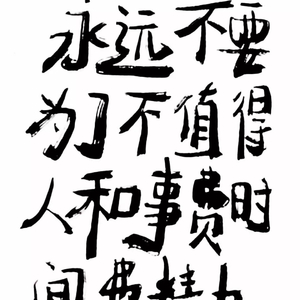 永远不要
为了不值得
人和事费时
间费精力